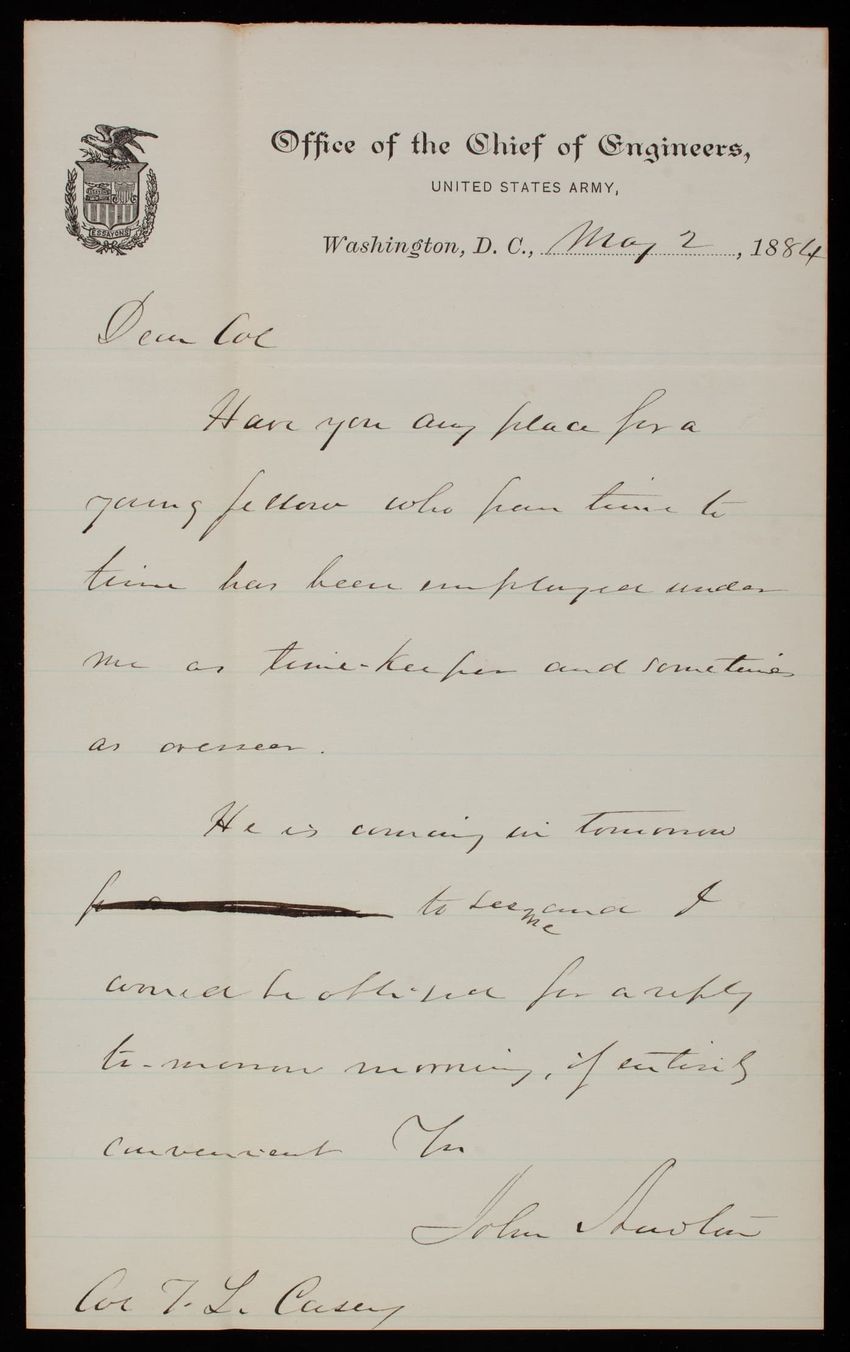 Office of the Chief of Engineers,
UNITED STATES ARMY,
ESSAYONS
Washington, D. C., May 2, 1884
Dear Col
Have you any place for a
young fellow who from time to
time has been employed under
me as time-keeper and sometimes
as overseer.
He is coming in tomorrow
to see me and I
would be obliged for a reply
to-morrow morning, if entirely
convenient Yrs
John Newton
Col T. L. Casey